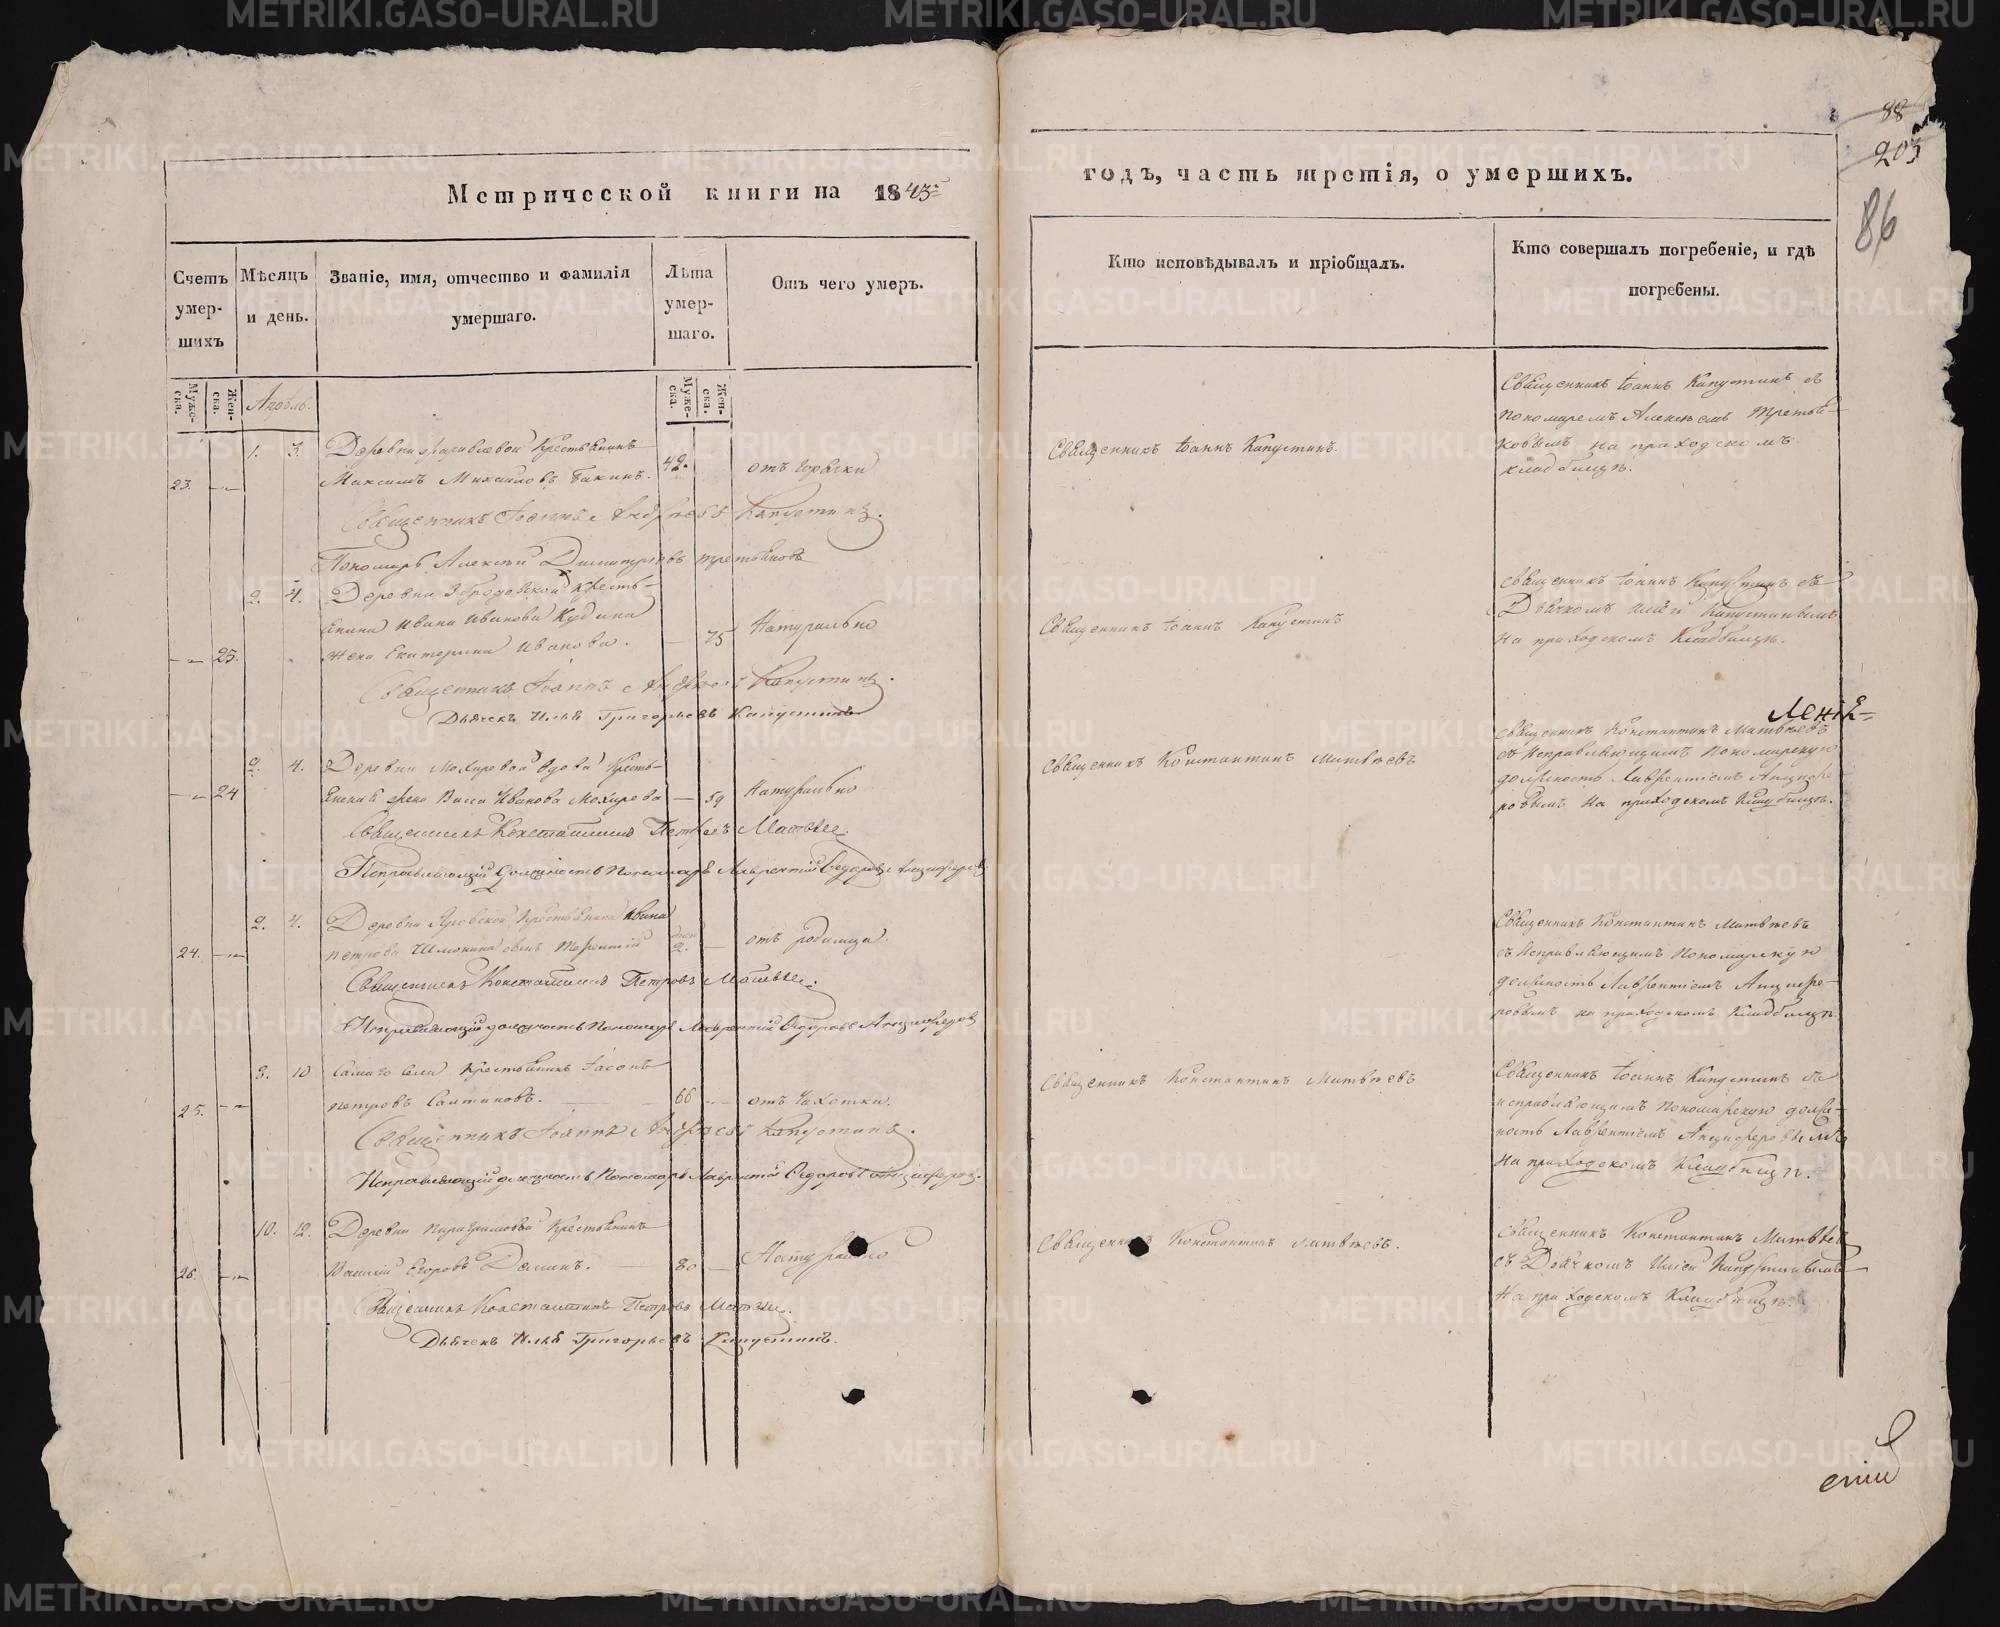 Метрической книги на 1843й
Счетъ умер-шихъ
Мѣсяцъ и день.
Званіе, имя, отчество и фамилія умершаго.
Лѣта умер-шаго.
Отъ чего умеръ.
Муже-ска.
Жен-ска.
Апрѣль.
Муже-ска.
Жен-ска.
1. 3. Деревни крестьянинъ
23. Максимъ Михайловъ Бакинъ. 42. отъ горячки
Священникъ Іоаннъ Андреевъ Капустинъ.
Пономарь Алексѣй Димитріевъ Третьяковъ
2. 4. Деревни Кресть-
янина Ивана Иванова Кудина
25. жена Екатерина Иванова. 75 Натурально
Священникъ Іоаннъ Андреевъ Капустинъ.
Дьячекъ Илья Григорьевъ Капустинъ
2. 4. Деревни Мохиревой вдова Кресть-
24 Васса Иванова Мохирева 59 Натурально
Священникъ Константинъ Петровъ Матвѣев.
Исправляющій должность Пономаря Лаврентій Ѳедоровъ Анциферовъ
2. 4. Деревни Крестьянина Ивана
24. Петрова Шмонина сынъ Терентій дней 2. отъ родимца.
Священникъ Константинъ Петровъ Матвѣев.
Исправляющій должность Пономаря Лаврентій Ѳедоровъ Анциферовъ
8. 10 Самаго села Крестьянинъ Іасонъ
25. Петровъ Салтановъ. 66 отъ Чахотки.
Священникъ Іоаннъ Андреевъ Капустинъ.
Исправляющій должность Пономаря Лаврентій Ѳедоровъ Анциферов.
10. 12. Деревни Крестьянинъ
26. Василій Егоровъ Деминъ. 80 Натурально
Священникъ Константинъ Петровъ Матвѣев.
Дьячекъ Илья Григорьевъ Капустинъ.
годъ, часть третія, о умершихъ.
88
203
86
Кто исповѣдывалъ и пріобщалъ.
Кто совершалъ погребеніе, и гдѣ погребены.
Священникъ Іоаннъ Капустинъ.
Священникъ Іоаннъ Капустинъ съ
пономаремъ Алексѣемъ Третья-
ковымъ на приходскомъ
кладбищѣ.
Священникъ Іоаннъ Капустинъ
Священникъ Іоаннъ Капустинъ съ
Дьячкомъ Ильей Капустинымъ
На приходскомъ Кладбищѣ.
Священникъ Константинъ Матвѣевъ
Священникъ Константинъ Матвѣевъ
съ Исправляющимъ Пономарскую
должность Лаврентіемъ Анцифе-
ровымъ на приходскомъ Кладбищѣ.
Священникъ Константинъ Матвѣевъ
съ Исправляющимъ Пономарскую
должность Лаврентіемъ Анцифе-
ровымъ на приходскомъ Кладбищѣ.
Священникъ Константинъ Матвѣевъ
Священникъ Іоаннъ Капустинъ съ
исправляющимъ Пономарскую долж-
ность Лаврентіемъ Анциферовымъ
На приходскомъ Кладбищѣ.
Священникъ Константинъ Матвѣевъ.
Священникъ Константинъ Матвѣев
съ Дьячкомъ Ильей Капустинымъ
На приходскомъ Кладбищѣ.
METRIKI.GASO-URAL.RU